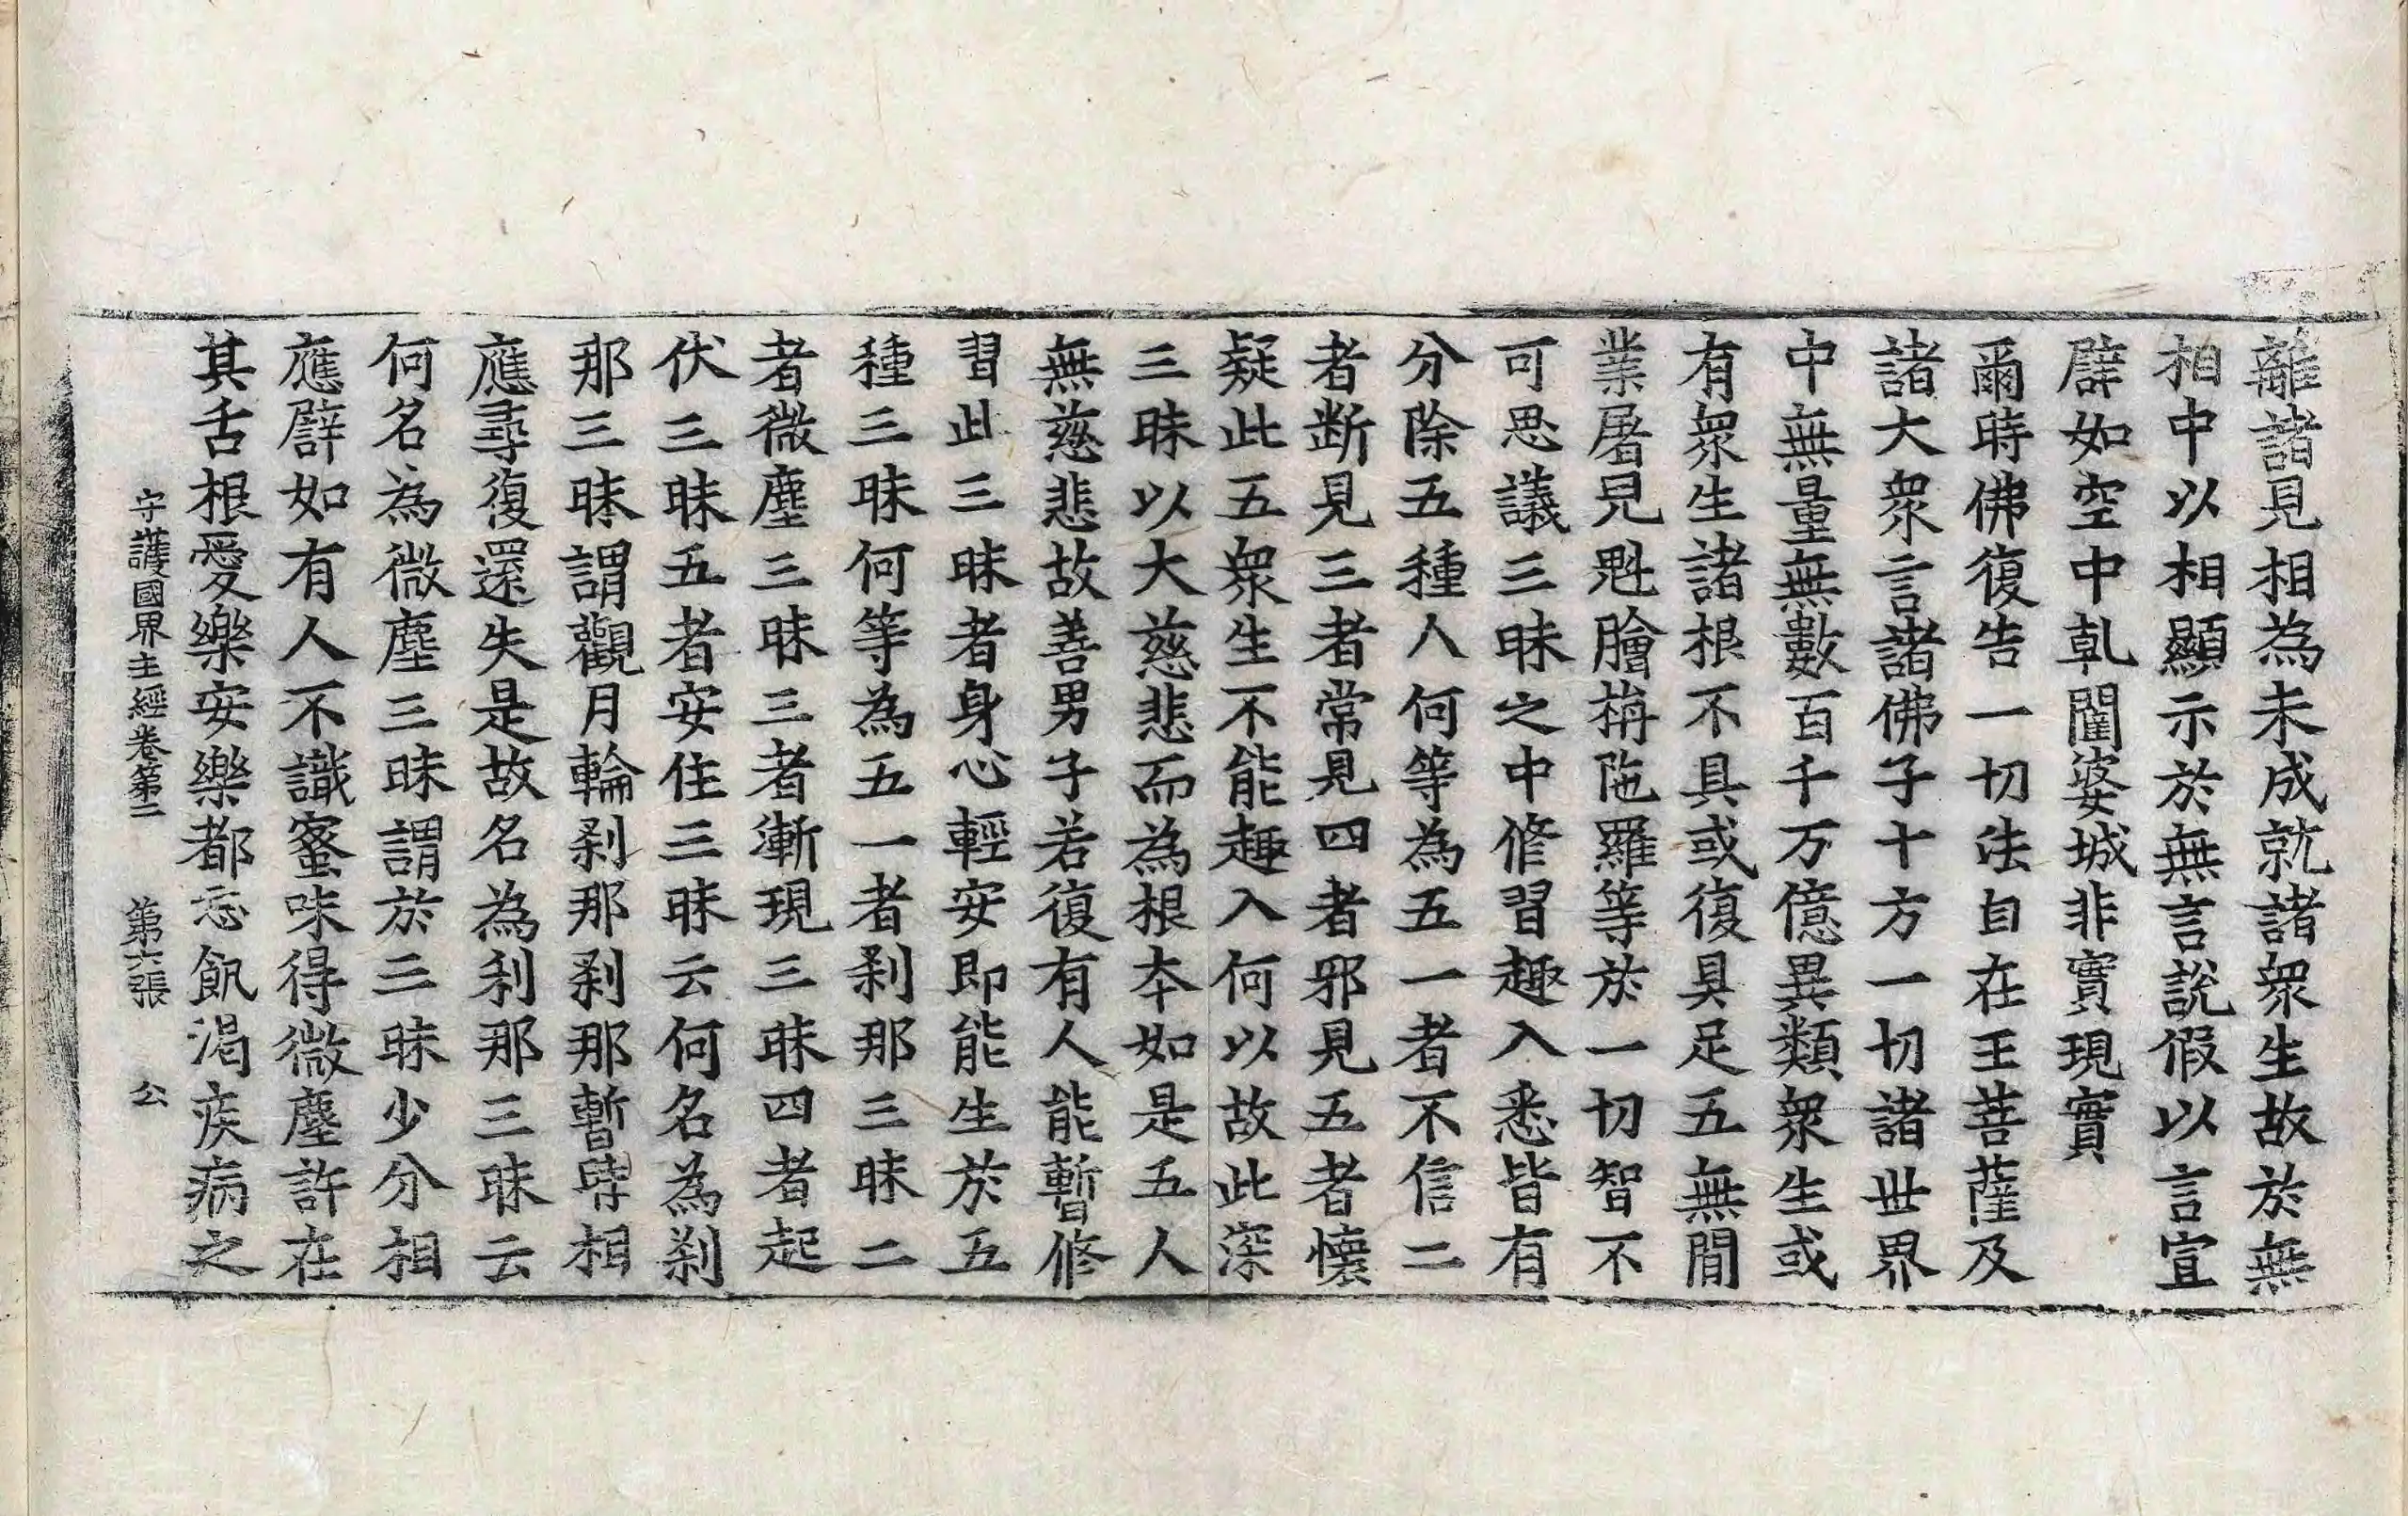 離諸見相為未成就諸衆生故於無
相中以相顯示於無言說假以言宣
譬如空中乹闥婆城非實現實
爾時佛復告一切法自在王菩薩及
諸大衆言諸佛子十方一切諸世界
中無量無數百千万億異類衆生或
有衆生諸根不具或復具足五無間
業屠兒魁膾栴陁羅等於一切智不
可思議三昧之中修習趣入悉皆有
分除五種人何等為五一者不信二
者断見三者常見四者邪見五者懷
疑此五衆生不能趣入何以故此深
三昧以大慈悲而為根本如是五人
無慈悲故善男子若復有人能暫修
習此三昧者身心輕安即能生於五
種三昧何等為五一者刹那三昧二
者微塵三昧三者漸現三昧四者起
伏三昧五者安住三昧云何名為刹
那三昧謂觀月輪刹那刹那暫時相
應尋復還失是故名為刹那三昧云
何名為微塵三昧謂於三昧少分相
應譬如有人不識蜜味得微塵許在
其舌根愛樂安樂都忘飢渴疾病之
守護國界主經卷第二　第六張　公